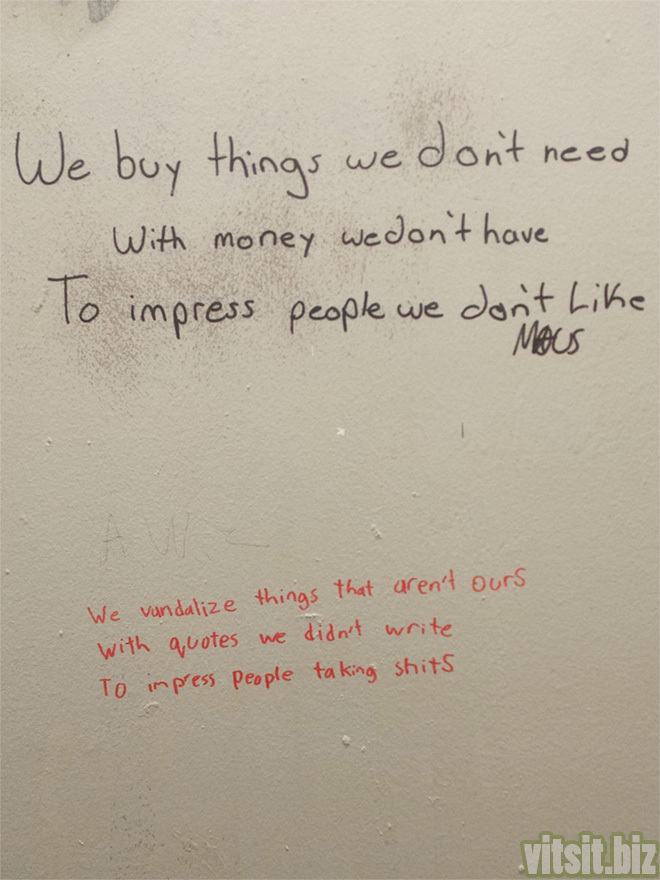 We buy things we don't need
With money we don't have
To impress people we don't Like
We vandalize things that aren't ours
With quotes we didn't write
To impress people taking shits
vitsit.biz